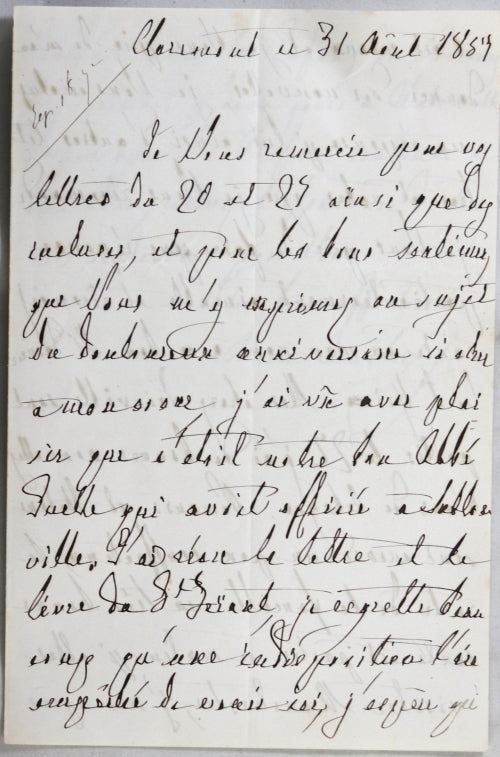 Claremont ce 31 Août 1857
Rep. le 5
Je Vous remercie pour vos
lettres du 20 et 27 aïnsi que des
incluses, et pour les bons sentimens
que Vous m'y exprimez au sujet
du douloureux anniversaire si cher
a mon coeur, j'ai vû avec plai
sir que c'etoit notre bon Abbé
Quelle qui avoit officié a
ville. J'ai réçu la lettre et le
livre du Dr je regrette beau
coup qu'une indisposition l'äie
empêché de venir ici, j'espère qu